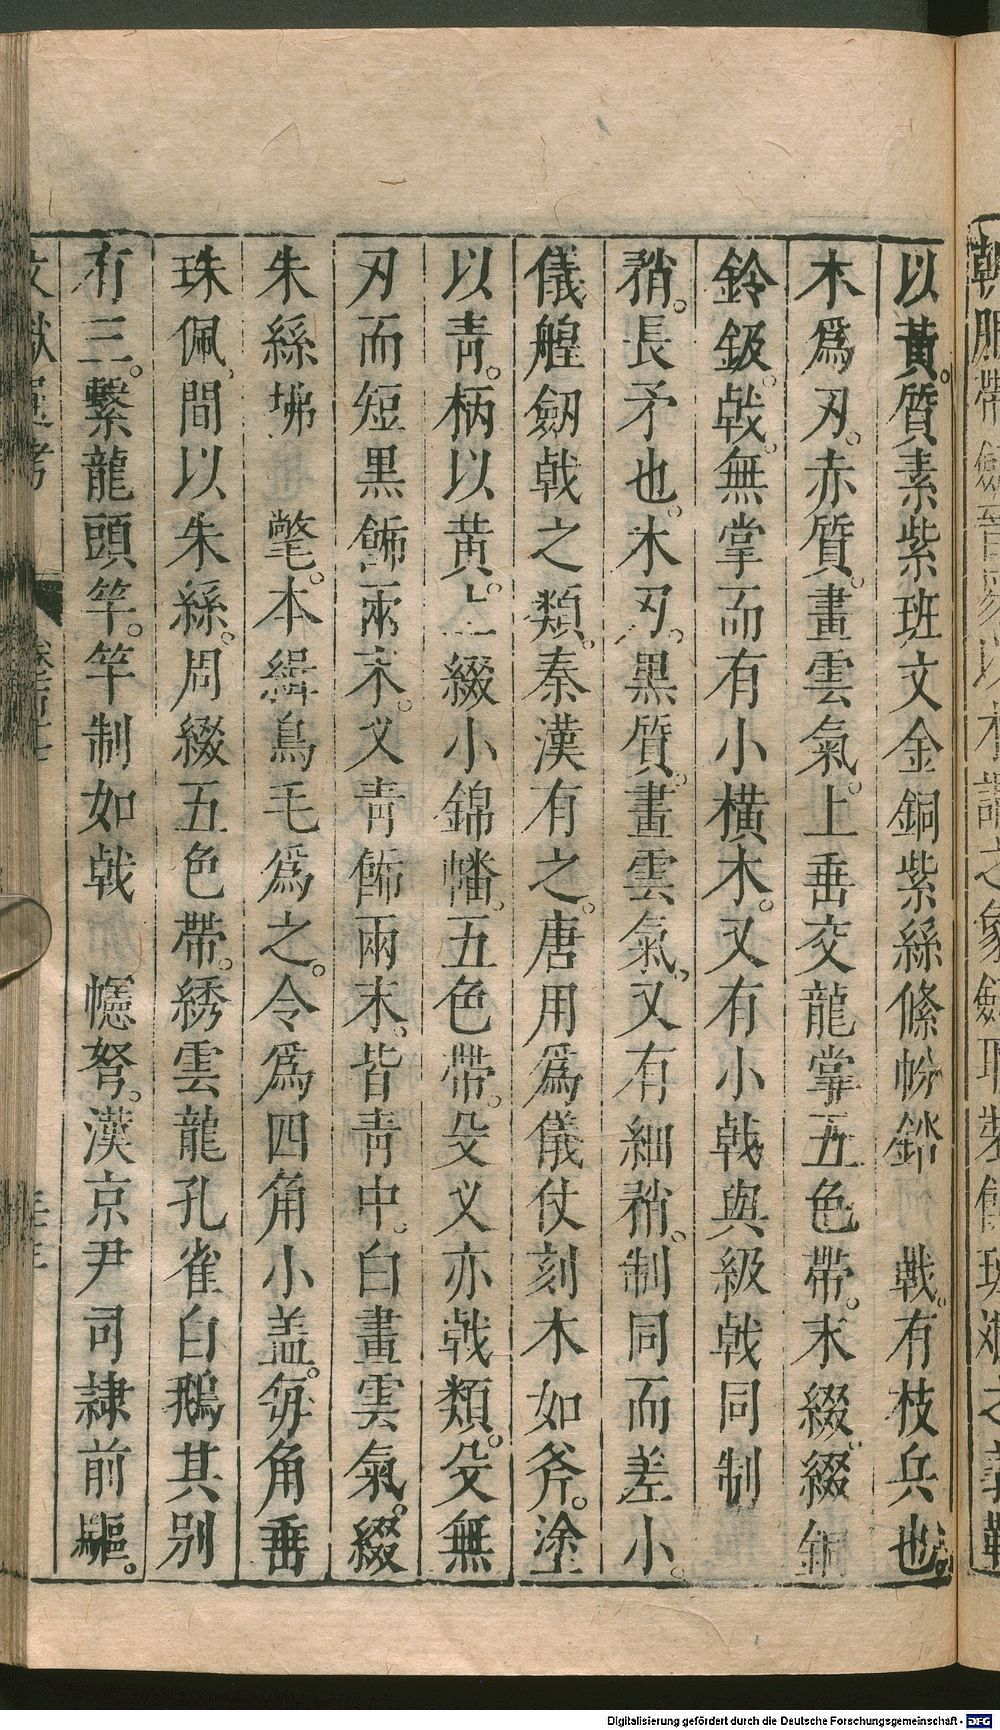 以黃。質素紫班文金銅紫絲絛帉錔 戟。有枝兵也。
木爲刃。赤質。畫雲氣。上垂交龍掌五色帶。末綴。綴銅
鈴鈒。戟。無掌而有小橫木。又有小戟與級戟同制
矟。長矛也。木刃。黑質。畫雲氣。又有細矟。制同而差小。
儀鍠劒戟之類。秦漢有之。唐用爲儀仗刻木如斧。塗
以靑。柄以黃。上綴小錦幡。五色帶。殳义亦戟類。殳無
刃而短黑飾兩末。义靑飾兩末。皆靑中。白畫雲氣。綴
朱絲坲 氅。本緝鳥毛爲之。令爲四角小盖。每角垂
珠佩。間以朱絲。周綴五色帶。綉雲龍孔雀白鵝其別
有三。繫龍頭竿。竿制如戟 幰弩。漢京尹司隷前驅。
文獻通考
Digitalisierung gefördert durch die Deutsche Forschungsgemeinschaft - DFG